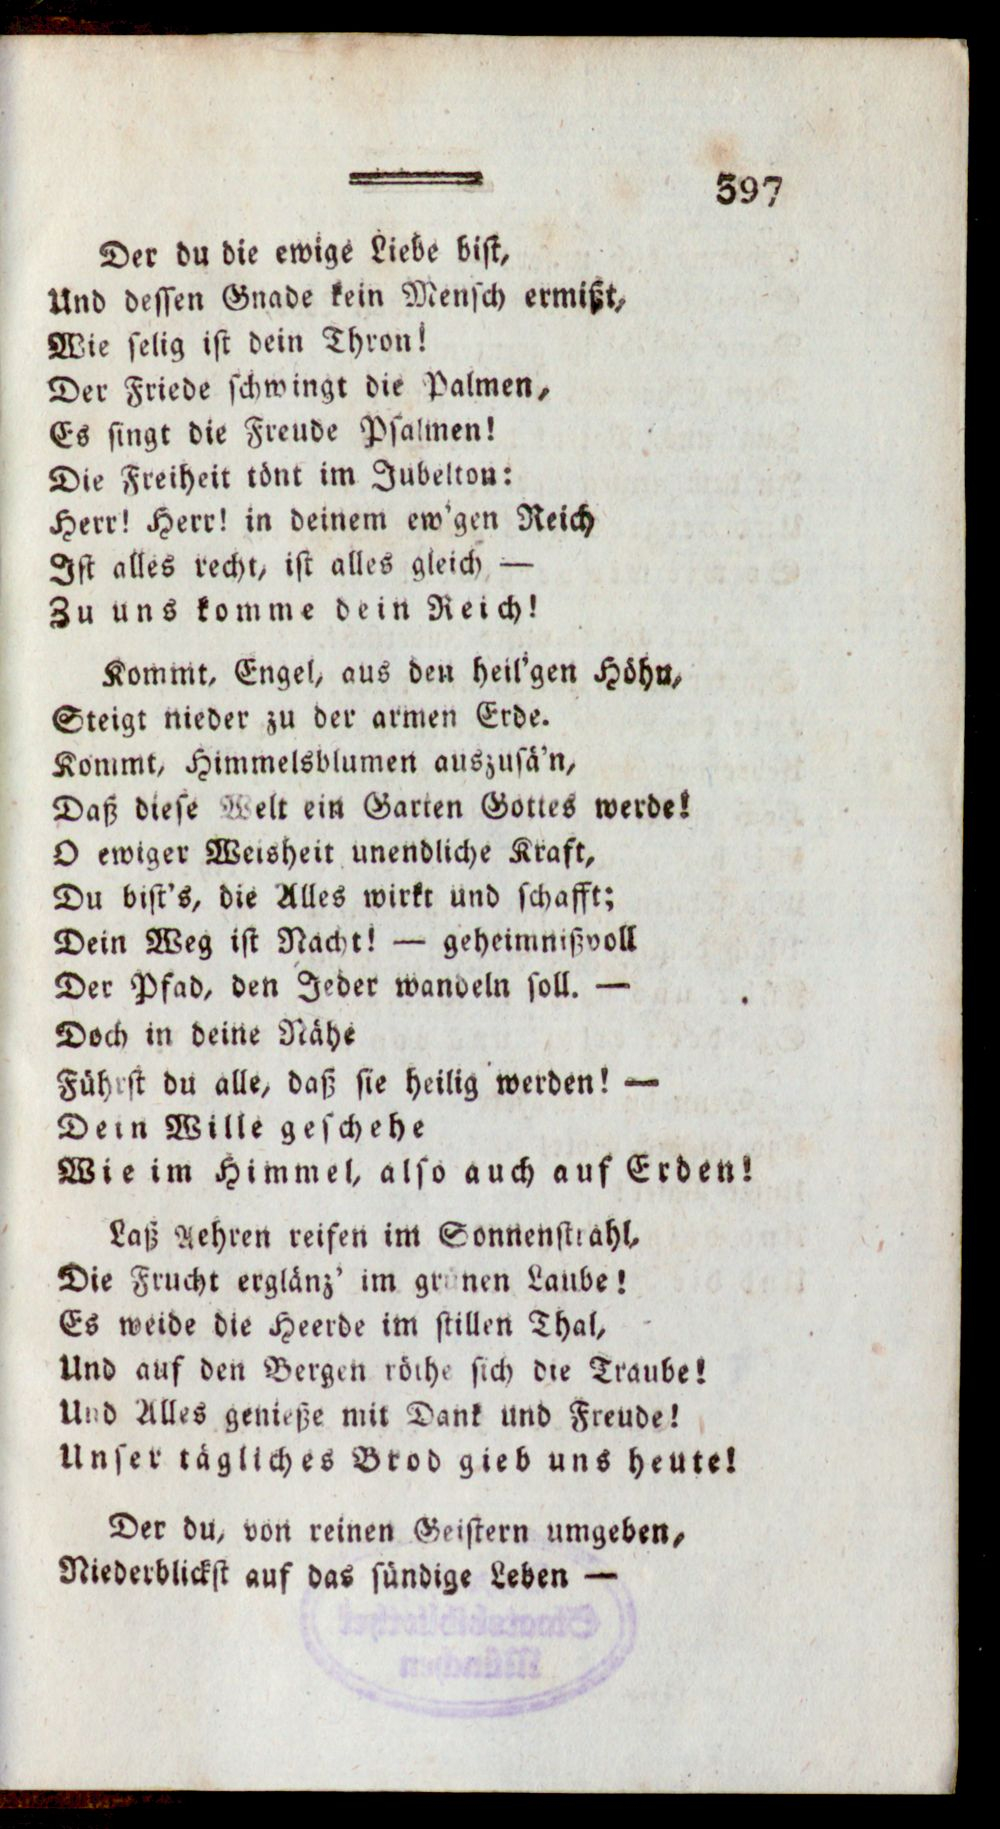 397
Der du die ewige Liebe bist,
Und dessen Gnade kein Mensch ermißt,
Wie selig ist dein Thron!
Der Friede schwingt die Palmen,
Es singt die Freude Psalmen!
Die Freiheit tönt im Jubelton:
Herr! Herr! in deinem ew'gen Reich
Ist alles recht, ist alles gleich —
Zu uns komme dein Reich!
Kommt, Engel, aus den heil'gen Höhn,
Steigt nieder zu der armen Erde.
Kommt, Himmelsblumen auszusä'n,
Daß diese Welt ein Garten Gottes werde!
O ewiger Weisheit unendliche Kraft,
Du bist's, die Alles wirkt und schafft;
Dein Weg ist Nacht! — geheimnißvoll
Der Pfad, den Jeder wandeln soll. —
Doch in deine Nähe
Führst du alle, daß sie heilig werden! —
Dein Wille geschehe
Wie im Himmel, also auch auf Erden!
Laß Aehren reifen im Sonnenstrahl,
Die Frucht erglänz' im grünen Laube!
Es weide die Heerde im stillen Thal,
Und auf den Bergen röthe sich die Traube!
Und Alles genieße mit Dank und Freude!
Unser tägliches Brod gieb uns heute!
Der du, von reinen Geistern umgeben,
Niederblickst auf das sündige Leben —
Staatsbibliothek
München